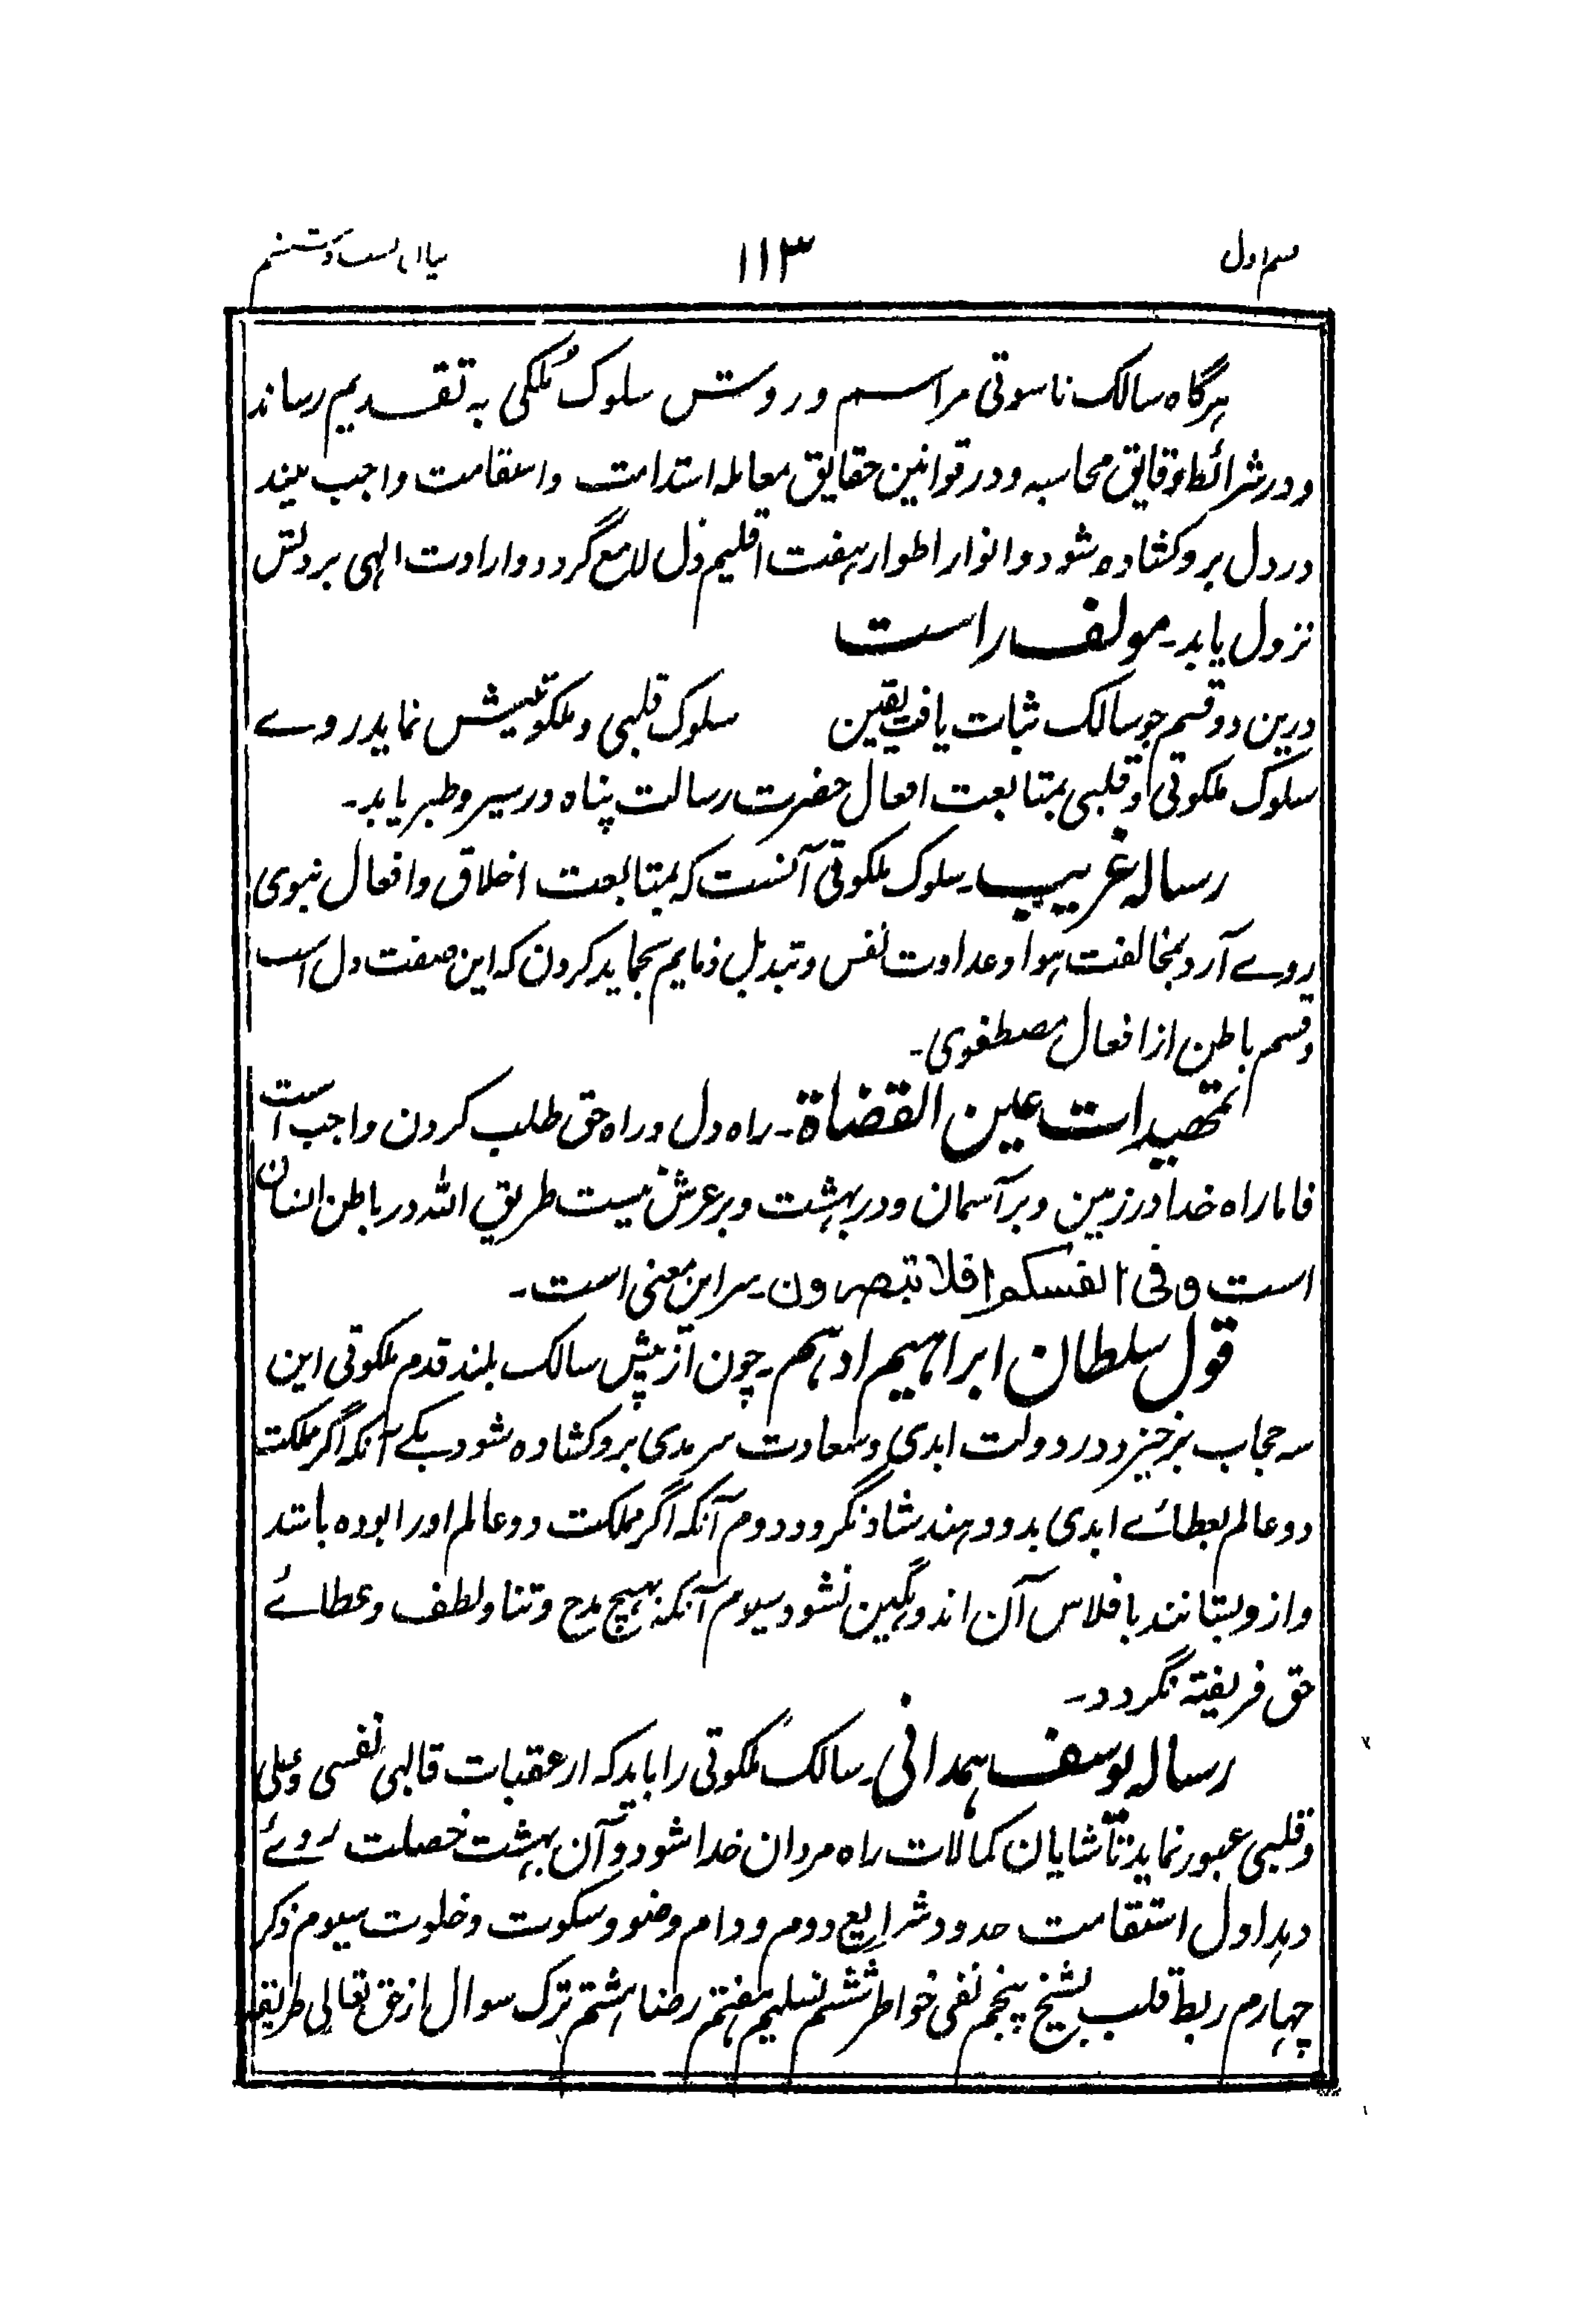 قسم اول ۱۱۳ بیان بست و ششم
ہرگاہ سالک ناسوتی مراسم و روش سلوک مُلکی بہ تقدیم رساند
و در شرائط دقایق محاسبہ و در قوانین حقایق معاملہ استدامت و استقامت واجب بیند
در دل برو کشادہ شود و انوار اطوار ہفت اقلیم دل لامع گردد و ارادت الہی بر دلش
نزول یابد۔ مولف راست
درین دو قسم چو سالک ثبات یافت یقین سلوک قلبی و ملکوتیش نماید روے
سلوک ملکوتی و قلبی بمتابعت افعال حضرت رسالت پناہ در سیر و طیر یابد۔
رسالہ غریب۔ سلوک ملکوتی آنست کہ بمتابعت اخلاق و افعال نبوی
روے آرد بمخالفت ہوا و عداوت نفس و تبدیل ذمایم بحماید کردن کہ این صفت دل است
و قسم باطن از افعال مصطفوی۔
تمہیدات عین القضاة۔ راہ دل و راہ حق طلب کردن واجب است
فاما راہ خدا در زمین و بر آسمان و در بہشت و بر عرش نیست طریق اللہ در باطن انسان
است و فی انفسکم افلا تبصرون۔ سر این معنی است۔
قول سلطان ابراہیم ادہم۔ چون از پیش سالک بلند قدم ملکوتی این
سہ حجاب برخیزد در دولت ابدی و سعادت سرمدی برو کشادہ شود یکے آنکہ اگر مملکت
دو عالم بعطائے ابدی بدو دہند شاد نگردد دوم آنکہ اگر مملکت دو عالم او را بودہ باشد
و ازو بستانند بافلاس آن اندوہگین نشود سیوم آنکہ بہیچ مدح و ثنا و لطف و عطائے
حق فریفتہ نگردد۔
رسالہ یوسف ہمدانی۔ سالک ملکوتی را باید کہ از عقبات قالبی نفسی و
و قلبی عبور نماید تا شایان کمالات راہ مردان خدا شود و آن بہشت خصلت روئے
دہد اول استقامت حدود شرایع دوم دوام وضو و سکوت و خلوت سیوم ذکر
چہارم ربط قلب بشیخ پنجم نفی خواطر ششم تسلیم ہفتم رضا ہشتم ترک سوال از حق تعالی طریقہ